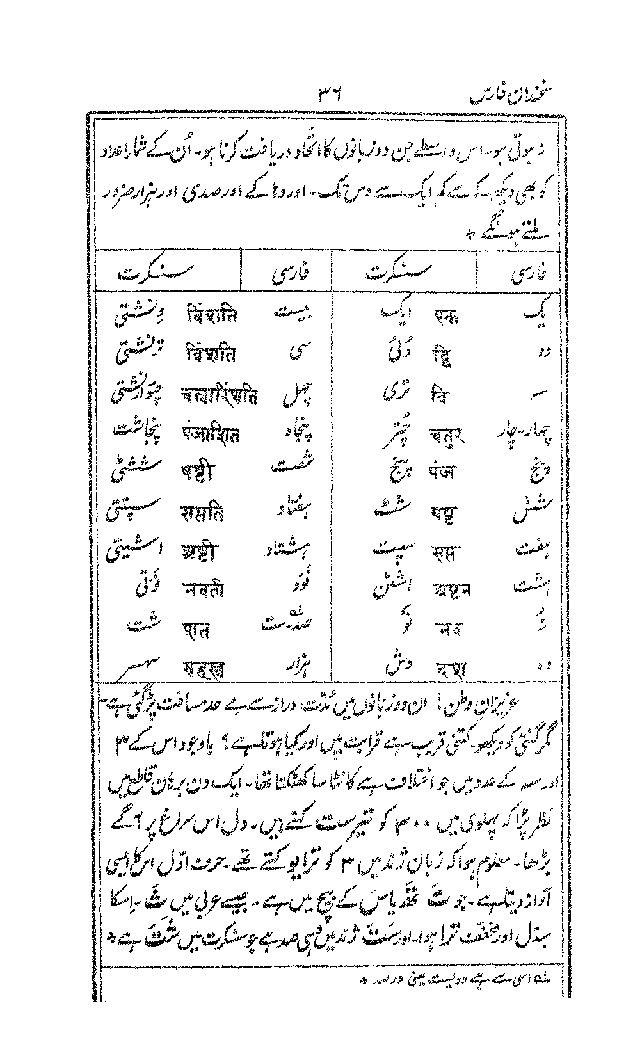 سخندان فارس ۳۶
نہ ہوتی ہو۔ اس واسطے جن دو زبانوں کا اتحاد دریافت کرنا ہو۔ اُن کے شمار اعداد
کو بھی دیکھو کہ سے کم ایک سے دس تک۔ اور دہا کے اور صدی اور ہزار ضرور
ملتے ہونگے *
فارسی سنسکرت فارسی سنسکرت
یک एक ایک بیست विंशति ونشتی
دو द्वि دُئی سی विंशति ترنشتی
سہ त्रि تری چہل चत्वारिंशति چتوارنشتی
چہار۔چار चतुर چُتر پنجاہ पंजाशित پنجاشت
پنج पंज پنج شصت षष्टी ششٹی
شش षष्ट شٹ ہفتاد सप्तति سپتتی
ہفت सप्त سپت ہشتاد अष्टी اشیتی
ہشت अष्टन اشٹن نَوَد नवती نَوَتی
نُہ नव نَو صد۔ست शत شت
دہ दश دش ہزار सहस्त्र سہسر
عزیزانِ وطن! ان دو زبانوں میں مُدّت دراز سے بے حد مسافت پڑگئی ہے۔
مگر گنتی کو دیکھو کتنی قریب سے قرابت ہیں اور کیا ہوتا ہے؟ باوجود اس کے ۳
اور سہ کے عدد میں جو اختلاف ہے کانٹا سا کھٹکتا تھا۔ ایک دن برہان قاطع میں
نظر پڑا کہ پہلوی میں ۳۰۰ کو تیرست کہتے ہیں۔ دل اس سراغ پر آگے
بڑھا۔ معلوم ہوا کہ زبان ژند میں ۳ کو ترایو کہتے تھے۔ حرف اوّل اس کا ایسی
آواز دیتا ہے۔ جو تَ تھَ یا سَ کے بیچ میں ہے۔ جیسے عربی میں ثَ۔ اسکا
مبدل اور مخفف ترا ہوا۔ اور سَت ژند میں وہی صد ہے جو سنسکرت میں شَت ہے *
؎ اسی سے ہے دویست یعنی دو صد *